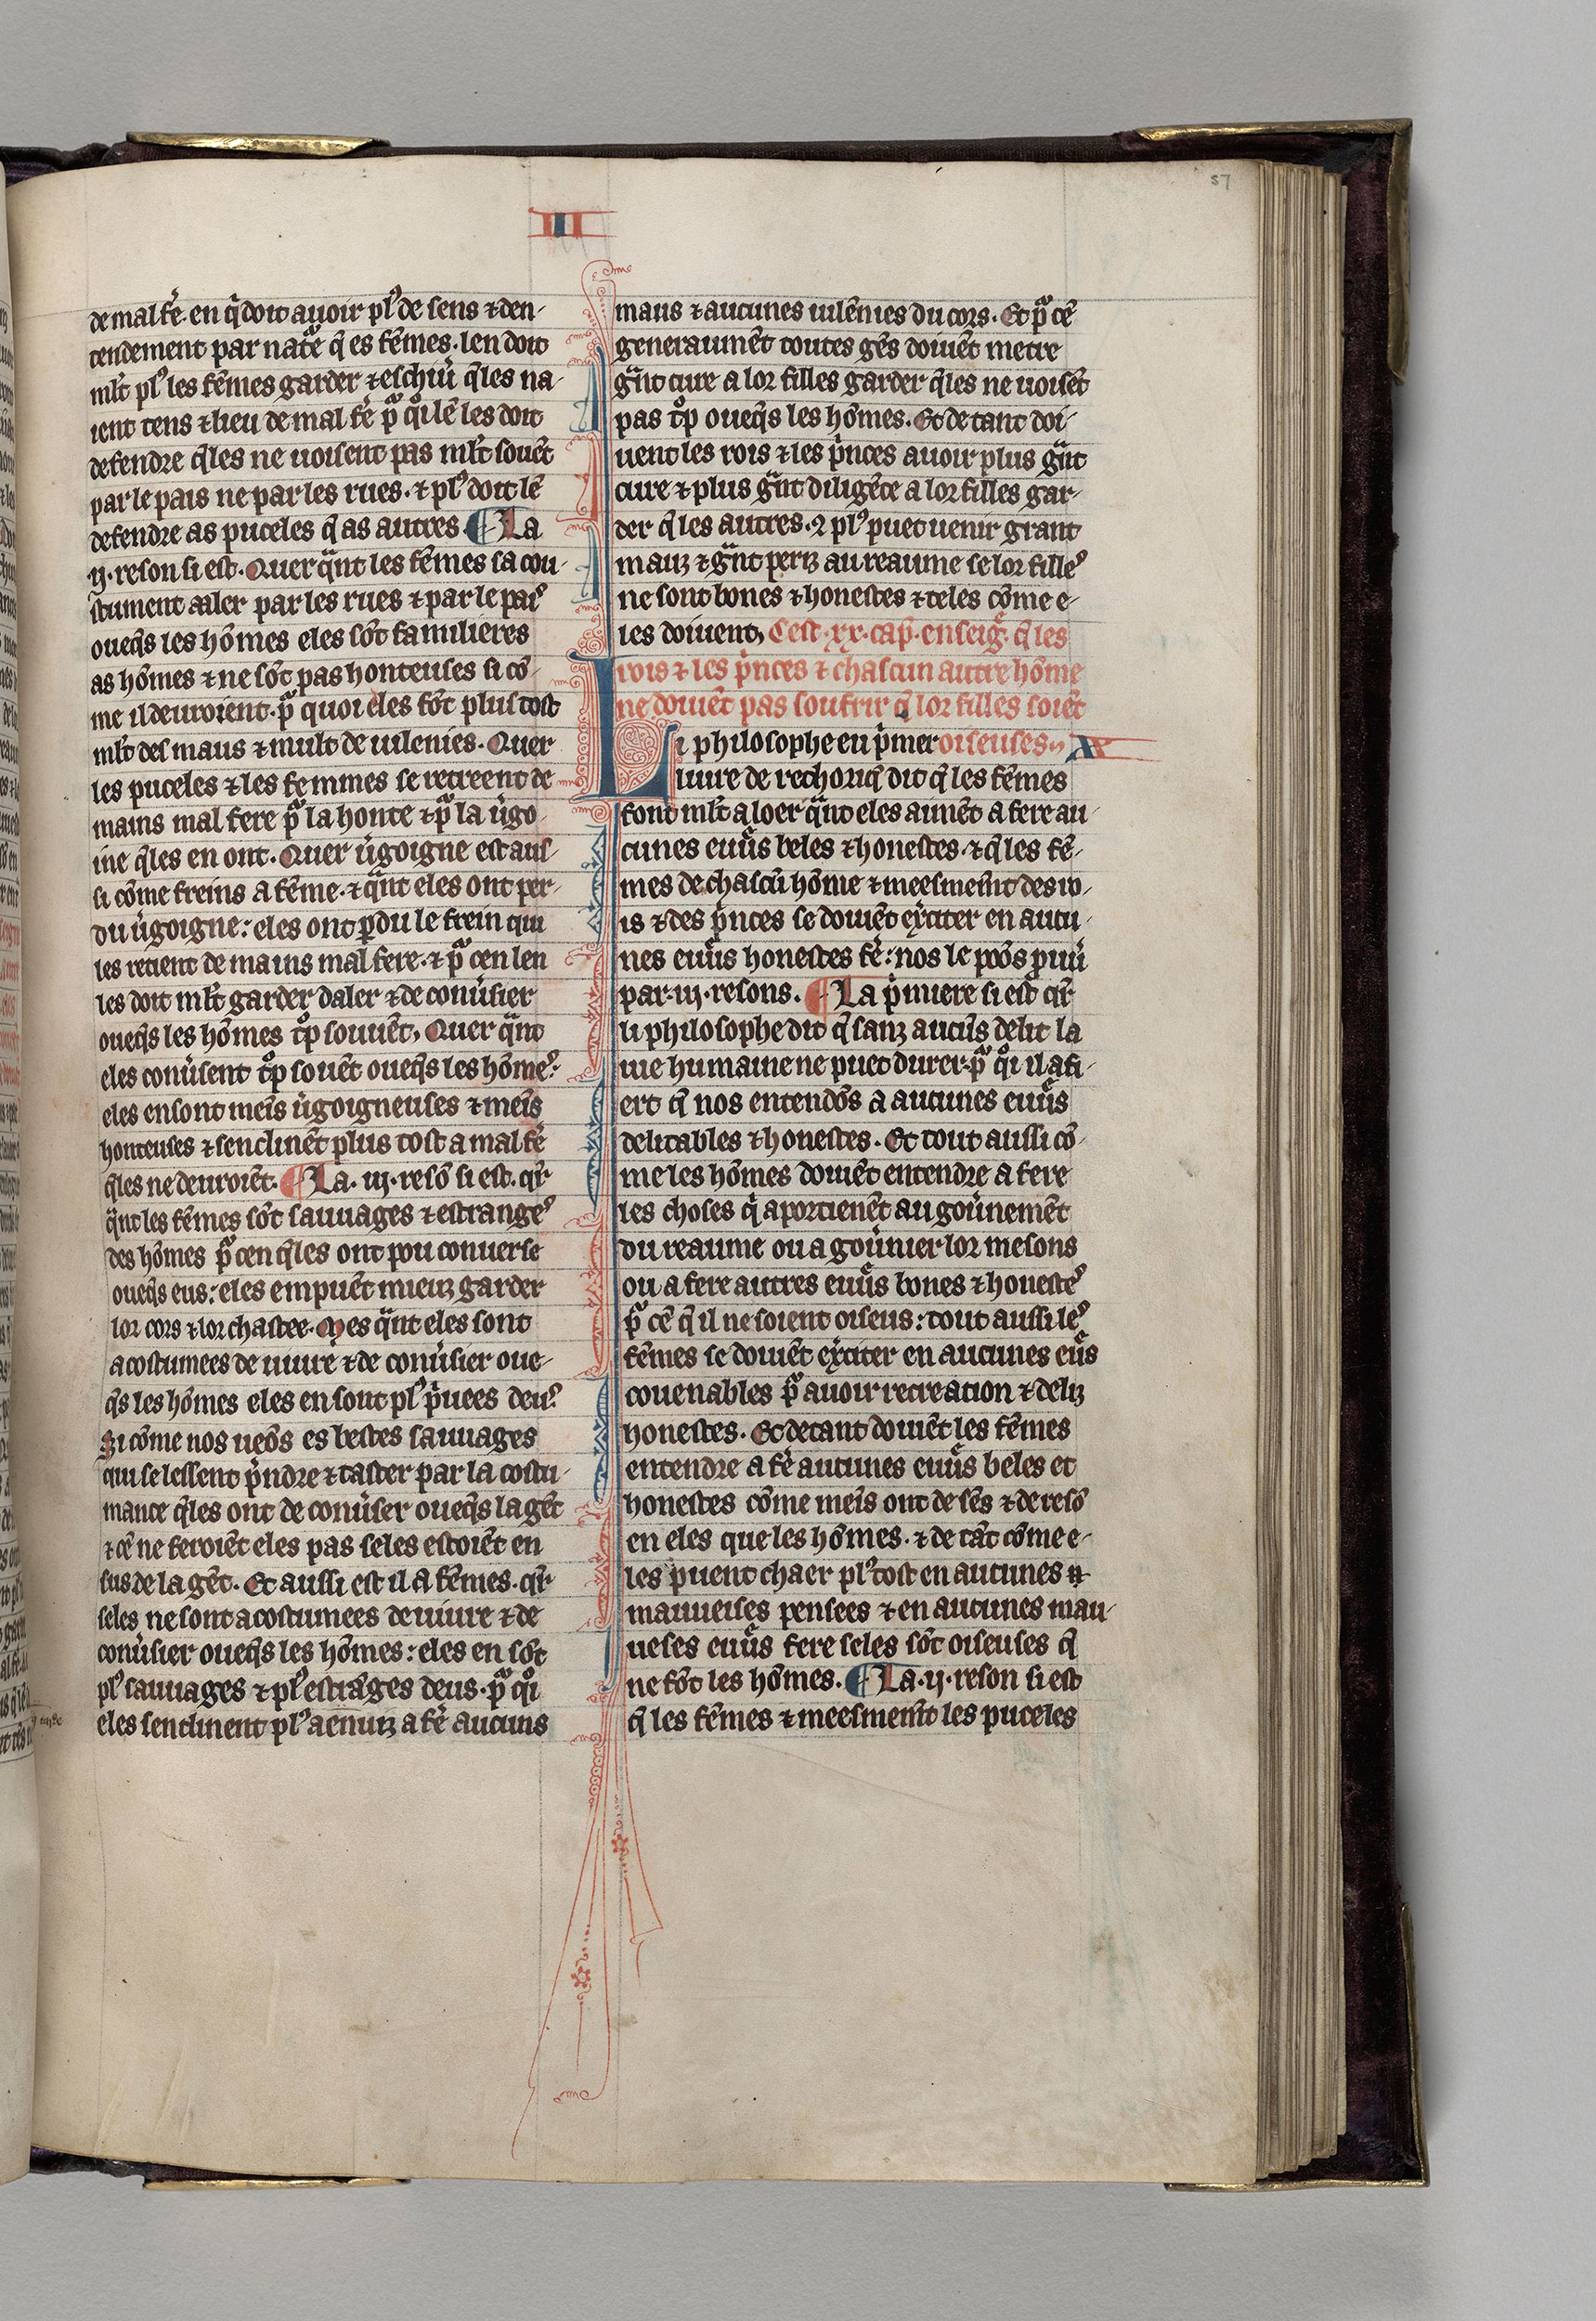 57
III
de mal fẻ. en q̃ doit auoir pl᷒ de sens ⁊ den-
tendement par natᷓe q̃ es fēmes. len doit
ml̃t pl᷒ les fēmes garder ⁊ eschiủ q̃les na-
ient tens ⁊ lieu de mal fẻ pᷓ qͦi lē les doit
defendre q̃les ne uoisent pas ml̃t souēt
par le pais ne par les rues. ⁊ pl᷒ doit lē
defendre as puceles q̃ as autres. ¶ La
.ij. reson si est. Quer qᷓnt les fēmes sacou-
stument aler par les rues ⁊ par le pai᷒
oueq̃s les hōmes eles sōt familieres
as hōmes ⁊ ne sōt pas honteuses si cō-
me il deuroient. pᷓ quoi eles fōt plus tost
ml̃t des maus ⁊ mult de uilenies. Quer
les puceles ⁊ les femmes se retreent de
mains mal fere pᷓ la honte ⁊ pᷓ la ủgo-
ine q̃les en ont. Quer ủgoigne est aus-
si cōme freins a fēme. ⁊ qᷓnt eles ont per-
du ủgoigne: eles ont ꝑdu le frein qui
les retient de mains mal fere. ⁊ pᷓ cen len
les doit ml̃t garder daler ⁊ de conủsier
oueq̃s les hōmes tͦp souuēt, Quer qᷓnt
eles conủsent tͦp souēt oueq̃s les hōme᷒:
eles en sont meīs ủgoigneuses ⁊ meīs
honteuses ⁊ senclinēt plus tost a mal fẻ
q̃les ne deuroiēt. ¶ La .iij. resō si est. qr̃
qᷓnt les fēmes sōt sauuages ⁊ estrange᷒
des hōmes pᷓ cen q̃les ont pou conuerse
oueq̃s eus: eles em puēt mieuz garder
lor cors ⁊ lor chastee. Mes qᷓnt eles sont
acostumees de uiure ⁊ de conủsier oue-
q̃s les hōmes eles en sont pl᷒ pͥuees deu᷒.
Si cōme nos ueōs es bestes sauuages
qui se lessent pͥndre ⁊ taster par la costu-
mance q̃les ont de conủser oueq̃s la gēt
⁊ cē ne feroiēt eles pas seles estoiēt en
sus de la gēt. Et aussi est il a fēmes. qr̃
seles ne sont acostumees de uiure ⁊ de
conủsier oueq̃s les hōmes: eles en sōt
pl᷒ sauuages ⁊ pl᷒ estrāges deus. pᷓ qͦi
eles senclinent pl᷒ aenuiz a fẻ aucuns
maus ⁊ aucunes uilēnies du cors. Et pᷓ cē
generaumēt toutes gēs doiuēt metre
gᷓnt cure a lor filles garder q̃les ne uoisēt
pas tͦp oueq̃s les hōmes. Et de tant doi-
uent les rois ⁊ les pͥnces auoir plus gᷓnt
cure ⁊ plus gᷓnt diligēce a lor filles gar-
der q̃ les autres. ⁊ pl᷒ puet uenir grant
mauz ⁊ gᷓnt periz au reaume se lor fille᷒
ne sont bones ⁊ honestes ⁊ teles cōme e-
les doiuent, Cest .xx. cap̃. enseig̃. q̃ les
rois ⁊ les pͥnces ⁊ chascun autre hōme
ne doiuēt pas soufrir q̃ lor filles soiēt
Li philosophe eu pͥmer oiseuses. XX
liure de rethoriq̃ dit q̃ les fēmes
font ml̃t a loer qᷓnt eles aimēt a fere au-
cunes euuᷓs beles ⁊ honestes. ⁊ q̃ les fē-
mes de chascū hōme ⁊ meesmem̃t des ro-
is ⁊ des pͥnces se doiuēt exꝰciter en aucu-
nes euuᷓs honestes fẻ: nos le poōs ꝓuủ
par .iij. resons. ¶ La pͥmiere si est qr̃
li philosophe dit q̃ sanz aucūs delit la
uie humaine ne puet durer. pᷓ qͦi il afi-
ert q̃ nos entendōs a aucunes euuᷓs
delitables ⁊ honestes. Et tout aussi cō-
me les hōmes doiuēt entendre a fere
les choses q̃ aportienēt au goủnemēt
du reaume ou a goủnier lor mesons
ou a fere autres euuᷓs bones ⁊ honeste᷒
pᷓ cē q̃ il ne soient oiseus: tout aussi le᷒
fēmes se doiuēt exꝰciter en aucunes euᷓs
couenables pᷓ auoir recreation ⁊ deliz
honestes. Et de tant doiuēt les fēmes
entendre a fẻ aucunes euuᷓs beles et
honestes cōme meīs ont de sēs ⁊ de resō
en eles que les hōmes. ⁊ de tāt cōme e-
les puent chaer pl᷒ tost en aucunes
mauueises pensees ⁊ en aucunes mau-
ueses euuᷓs fere seles sōt oiseuses q̃
ne fōt les hōmes. ¶ La .ij. reson si est
q̃ les fēmes ⁊ meesmem̃t les puceles